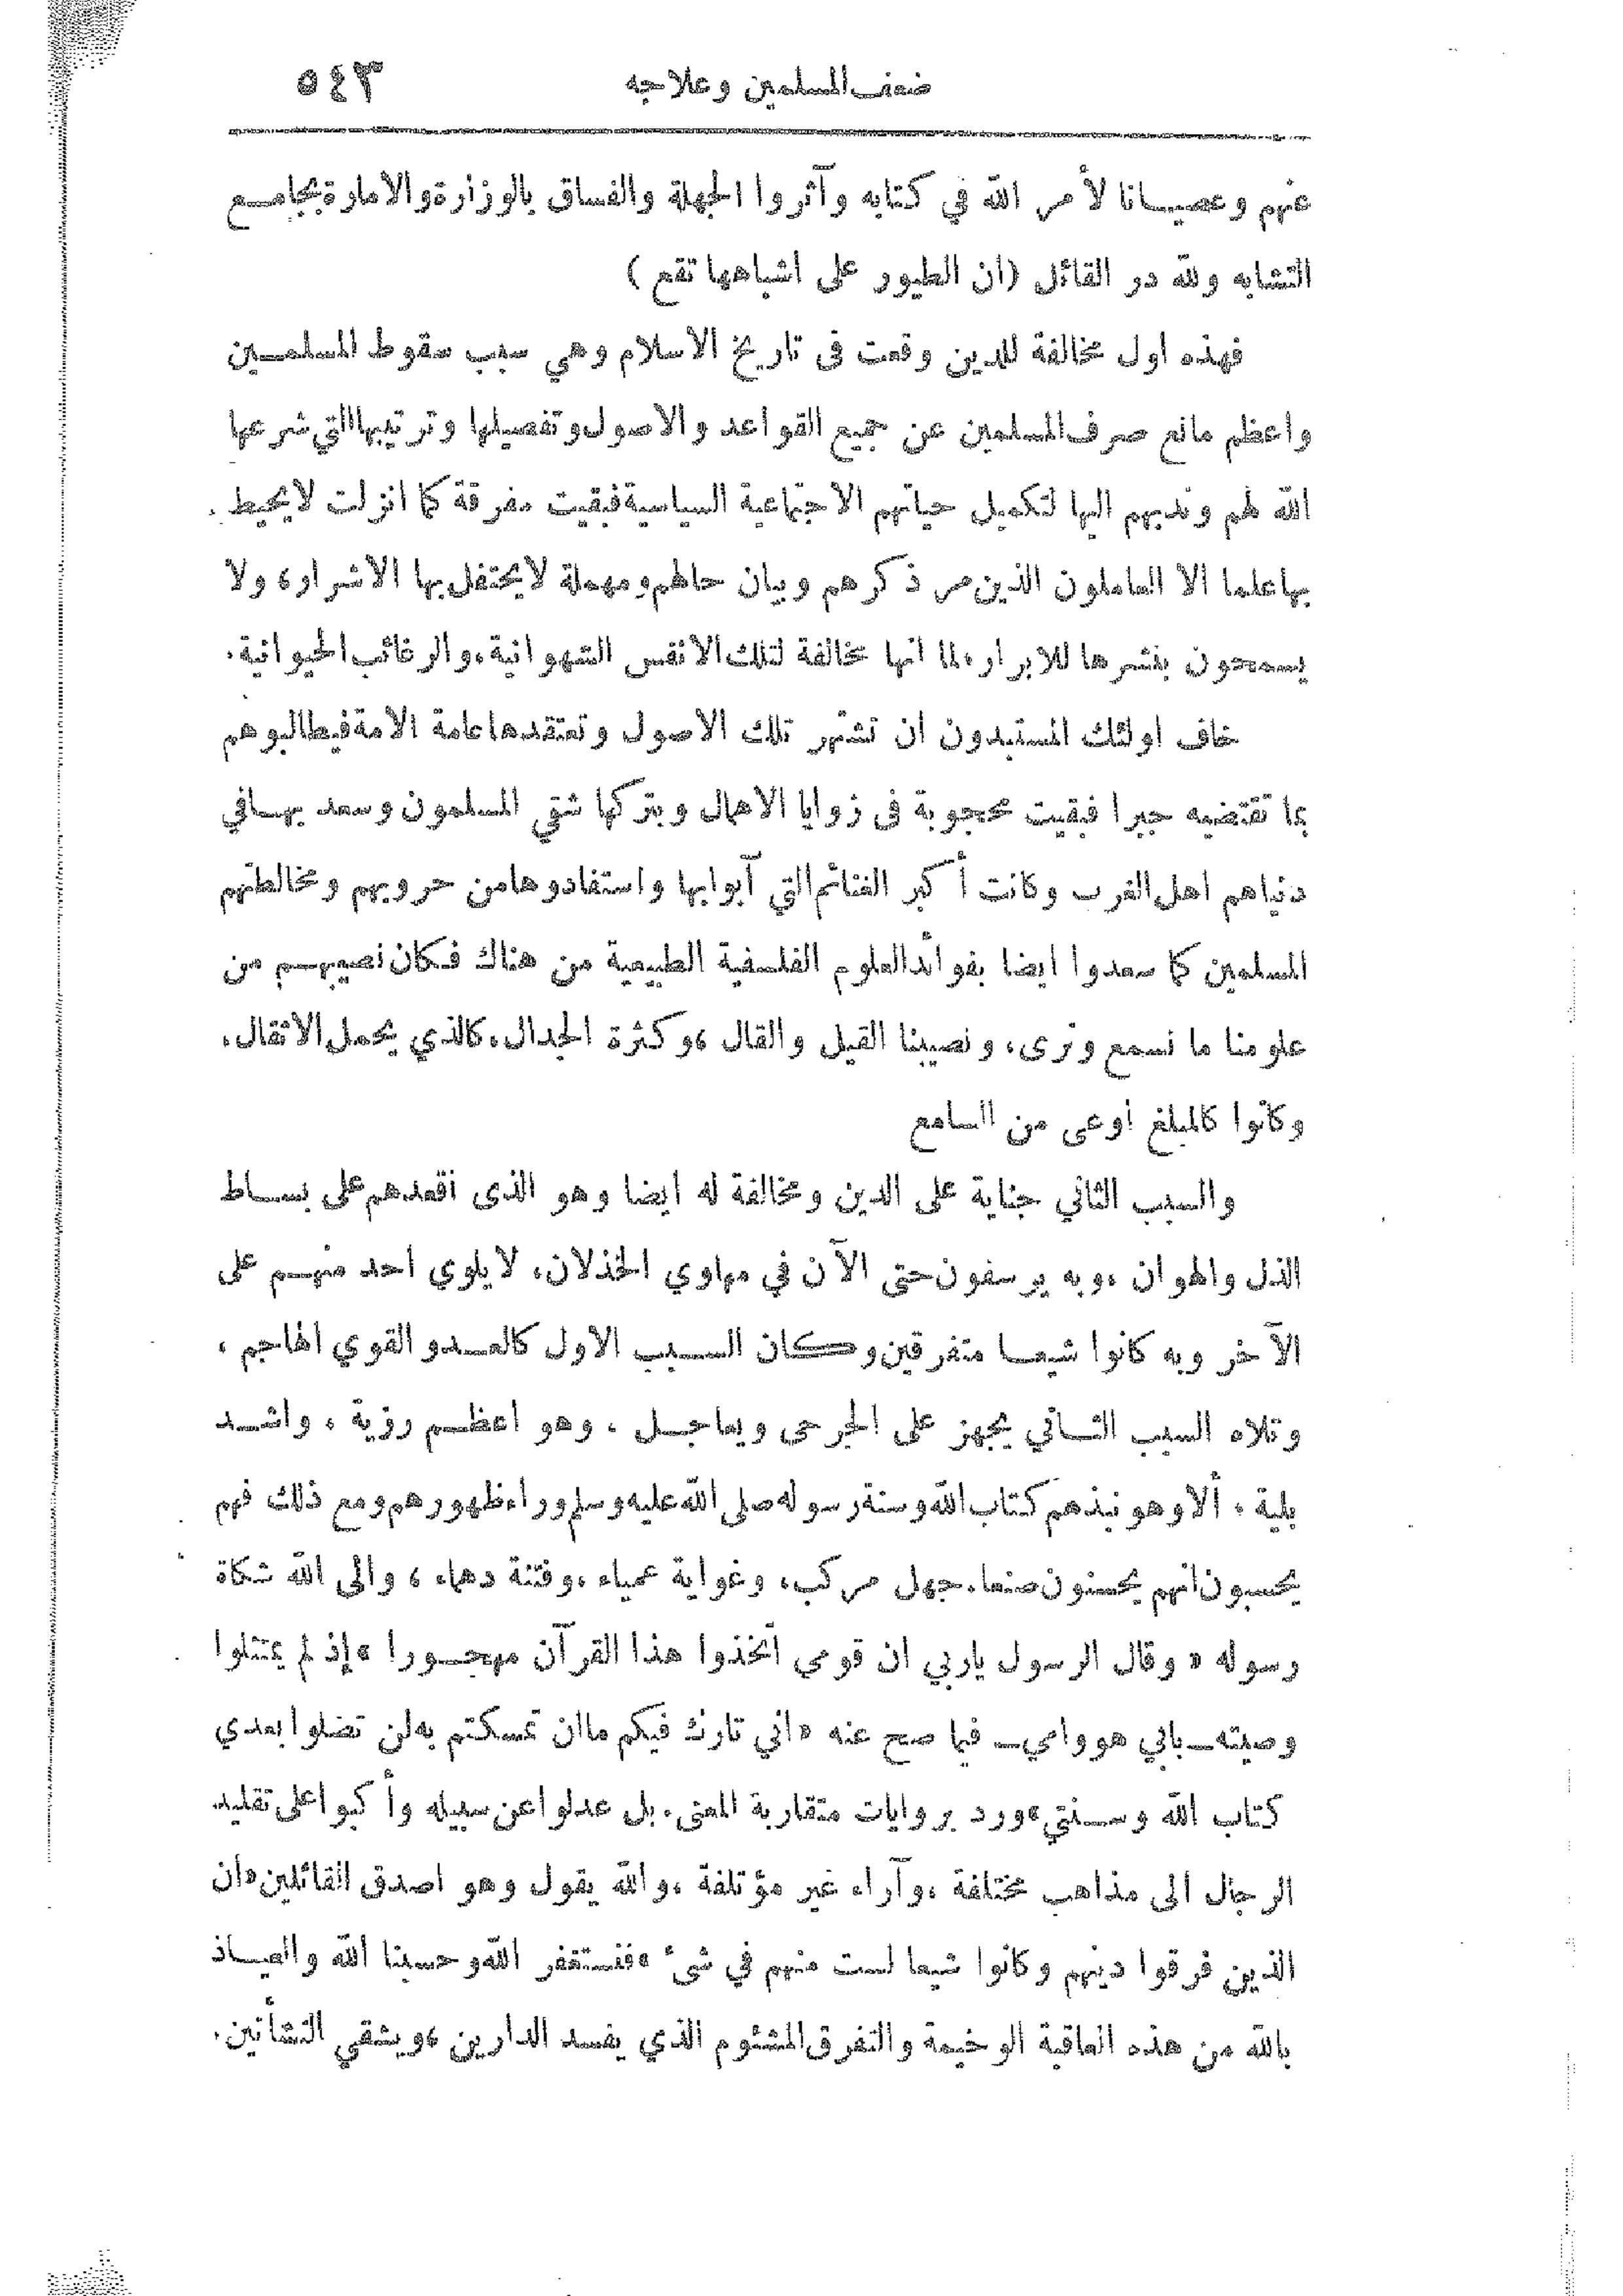 ضعف المسلمين وعلاجه ٥٤٣
عنهم وعصيانا لأمر الله في كتابه وآثروا الجهلة والفساق بالوزارة والامارة بجامع
التشابه ولله در القائل (ان الطيور على اشباهها تقع)
فهذه اول مخالفة للدين وقعت فى تاريخ الاسلام وهي سبب سقوط المسلمين
واعظم مانع صرف المسلمين عن جميع القواعد والاصول وتفصيلها وترتيبها التي شرعها
الله لهم وندبهم اليها لتكميل حياتهم الاجتماعية السياسية فبقيت مفرقة كما انزلت لا يحيط
بها علما الا العاملون الذين مر ذكرهم وبيان حالهم ومهملة لا يحتفل بها الاشرار، ولا
يسمحون بنشرها للابرار، لما انها مخالفة لتلك الانفس الشهوانية، والرغائب الحيوانية.
خاف اولئك المستبدون ان تشتهر تلك الاصول وتعتقدها عامة الامة فيطالبوهم
بما تقتضيه جبرا فبقيت محجوبة فى زوايا الاهمال وبتركها شقي المسلمون وسعد بها في
دنياهم اهل الغرب وكانت أكبر الغنائم التي آبوا بها واستفادوها من حروبهم ومخالطتهم
المسلمين كما سعدوا ايضا بفوائد العلوم الفلسفية الطبيعية من هناك فكان نصيبهم من
علومنا ما نسمع ونرى، ونصيبنا القيل والقال، وكثرة الجدال، كالذي يحمل الاثقال،
وكانوا كالمبلغ أوعى من السامع
والسبب الثاني جناية على الدين ومخالفة له ايضا وهو الذى اقعدهم على بساط
الذل والهوان، وبه يرسفون حتى الآن في مهاوي الخذلان، لا يلوي احد منهم على
الآخر وبه كانوا شيعا متفرقين وكان السبب الاول كالعدو القوي الهاجم،
وتلاه السبب الثاني يجهز على الجرحى ويعاجل، وهو اعظم رزية، واشد
بلية، ألا وهو نبذهم كتاب الله وسنة رسوله صلى الله عليه وسلم وراء ظهورهم ومع ذلك فهم
يحسبون انهم يحسنون صنعا. جهل مركب، وغواية عمياء، وفتنة دهماء، والى الله شكاة
رسوله «وقال الرسول ياربي ان قومي اتخذوا هذا القرآن مهجورا» إذ لم يمتثلوا
وصيته ــ بابي هو وامي ــ فيما صح عنه «اني تارك فيكم ما ان تمسكتم به لن تضلوا بعدي
كتاب الله وسنتي» ورد بروايات متقاربة المعنى. بل عدلوا عن سبيله وأكبوا على تقليد
الرجال الى مذاهب مختلفة، وآراء غير مؤتلفة، والله يقول وهو اصدق القائلين «ان
الذين فرقوا دينهم وكانوا شيعا لست منهم في شئ» فنستغفر الله وحسبنا الله والعياذ
بالله من هذه العاقبة الوخيمة والتفرق المشئوم الذي يفسد الدارين، ويشقي النشأتين.